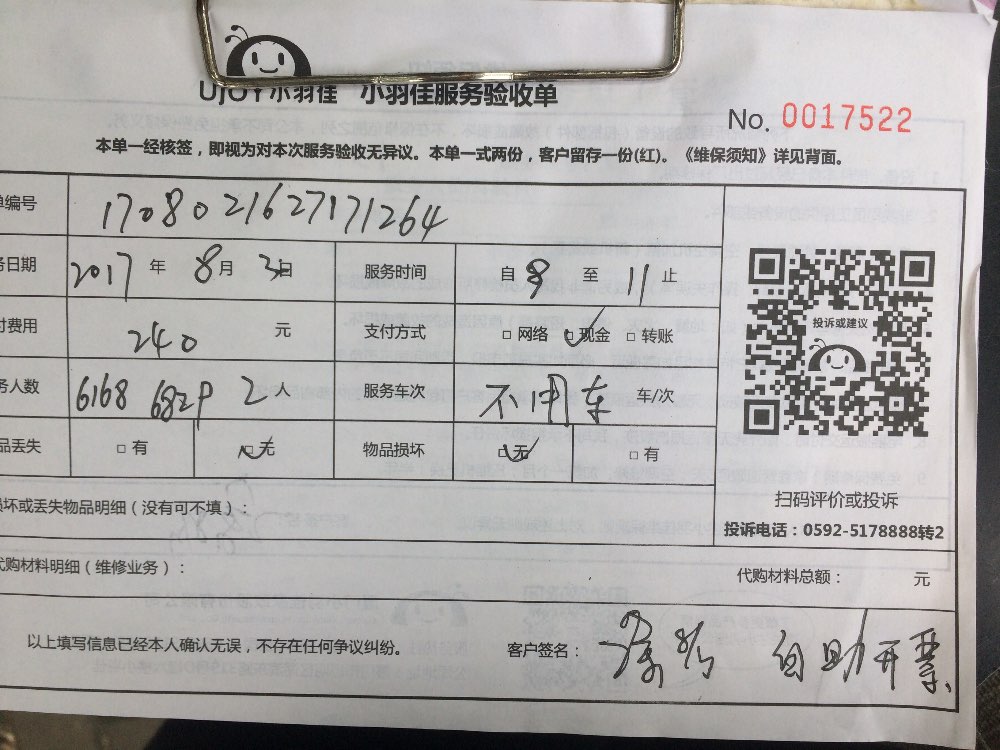 UJOY小羽佳 小羽佳服务验收单
No. 0017522
本单一经核签，即视为对本次服务验收无异议。本单一式两份，客户留存一份(红)。《维保须知》详见背面。
单编号 1708021627171264
务日期 2017 年 8月 3日 服务时间 自 8 至 11 止
付费用 240 元 支付方式 □ 网络 □ 现金 □ 转账
务人数 6168 682P 2 人 服务车次 不用车 车/次
品丢失 □ 有 □ 无 物品损坏 □ 无 □ 有
投诉或建议
扫码评价或投诉
投诉电话：0592-5178888转2
损坏或丢失物品明细（没有可不填）：
代购材料明细（维修业务）： 代购材料总额： 元
以上填写信息已经本人确认无误，不存在任何争议纠纷。 客户签名： 自助开票